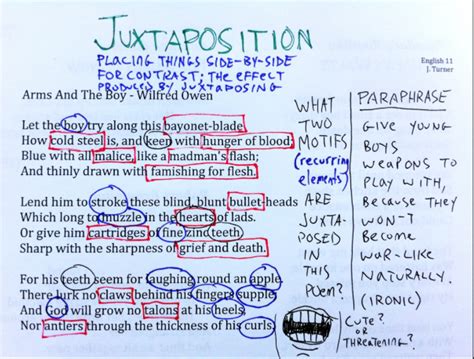 JUXTAPOSITION
PLACING THINGS SIDE-BY-SIDE
FOR CONTRAST; THE EFFECT
PRODUCED BY JUXTAPOSING
English 11
J. Turner
Arms And The Boy - Wilfred Owen
Let the boy try along this bayonet-blade
How cold steel is, and keen with hunger of blood;
Blue with all malice, like a madman's flash;
And thinly drawn with famishing for flesh.
Lend him to stroke these blind, blunt bullet-heads
Which long to muzzle in the hearts of lads.
Or give him cartridges of fine zinc teeth
Sharp with the sharpness of grief and death.
For his teeth seem for laughing round an apple.
There lurk no claws behind his fingers supple;
And God will grow no talons at his heels,
Nor antlers through the thickness of his curls.
WHAT
TWO
MOTIFS
(recurring
elements)
ARE
JUXTA-
POSED
IN
THIS
POEM?
PARAPHRASE
GIVE YOUNG
BOYS
WEAPONS TO
PLAY WITH,
BECAUSE THEY
WON'T
BECOME
WAR-LIKE
NATURALLY.
(IRONIC)
CUTE?
OR
THREATENING?